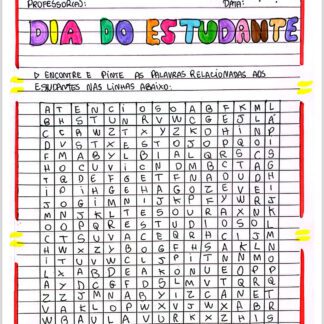 PROFESSOR(A):
DATA:
DIA DO ESTUDANTE
ENCONTRE E PINTE AS PALAVRAS RELACIONADAS AOS
ESTUDANTES NAS LINHAS ABAIXO:
A T E N C I O S O A B F K M L
B H S T U N R V W C G E J L A
C C A W Z T X Y Z K O H I N P
D V S T X E S T O J O P Q O I
F M A B Y L B I A L Q R S C S
H O C U V I C N D M B C T A G
T Q D E F G E T F N A O U D H
I P I H G E H A G O Z E V E I
J O G I M N I J K P F Y W R J
M N J K L T E S O U R A X N K
O O P Q R E S T U D I O S O L
C T S U V A C E Q R H C I J M
H W X Z Y B O G F H S A K L N
I T U V W C L J P I T N N M O
L X A B D E A K O N U E O P P
A Y D C G F D S L M V T Q R Q
Z Z J M N A B Y I Z C A N E T
V A K L O P W X V J W X A B R
W B A U L A V U R K X Z H I S